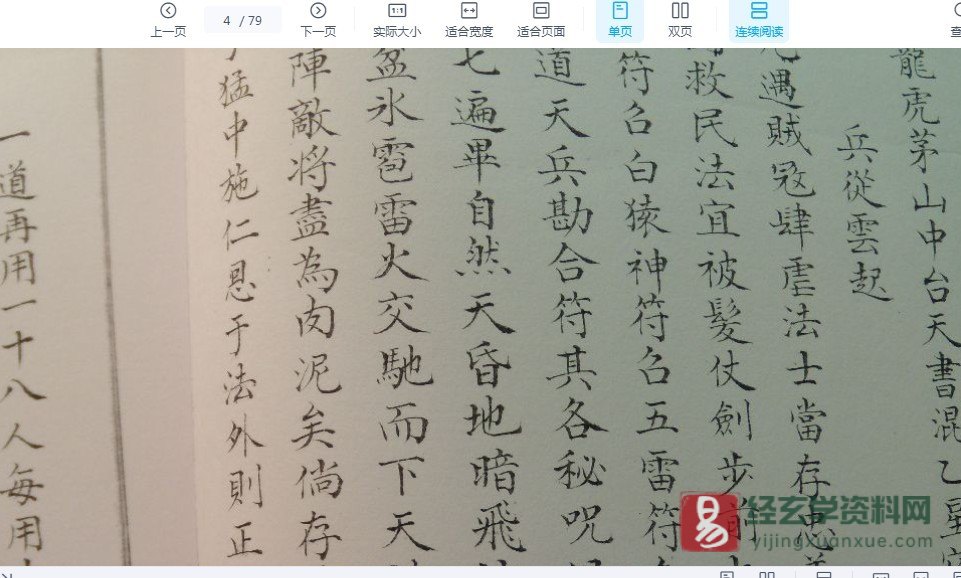 上一页
4 / 79
下一页
1:1
实际大小
适合宽度
适合页面
单页
双页
连续阅读
查
龍虎茅山中台天書混乙
兵從雲起
遇賊寇肆虐法士當存忠
救民法宜被髮仗劍步前
符召白猿神符召五雷符
道天兵勘合符其各秘呪
七遍畢自然天昏地暗飛
盆氷雹雷火交馳而下天
陣敵将盡為肉泥矣倘存
猛中施仁恩于法外則正
一道再用一十八人每用
易
经玄学资料网
yijingxuanxue.com